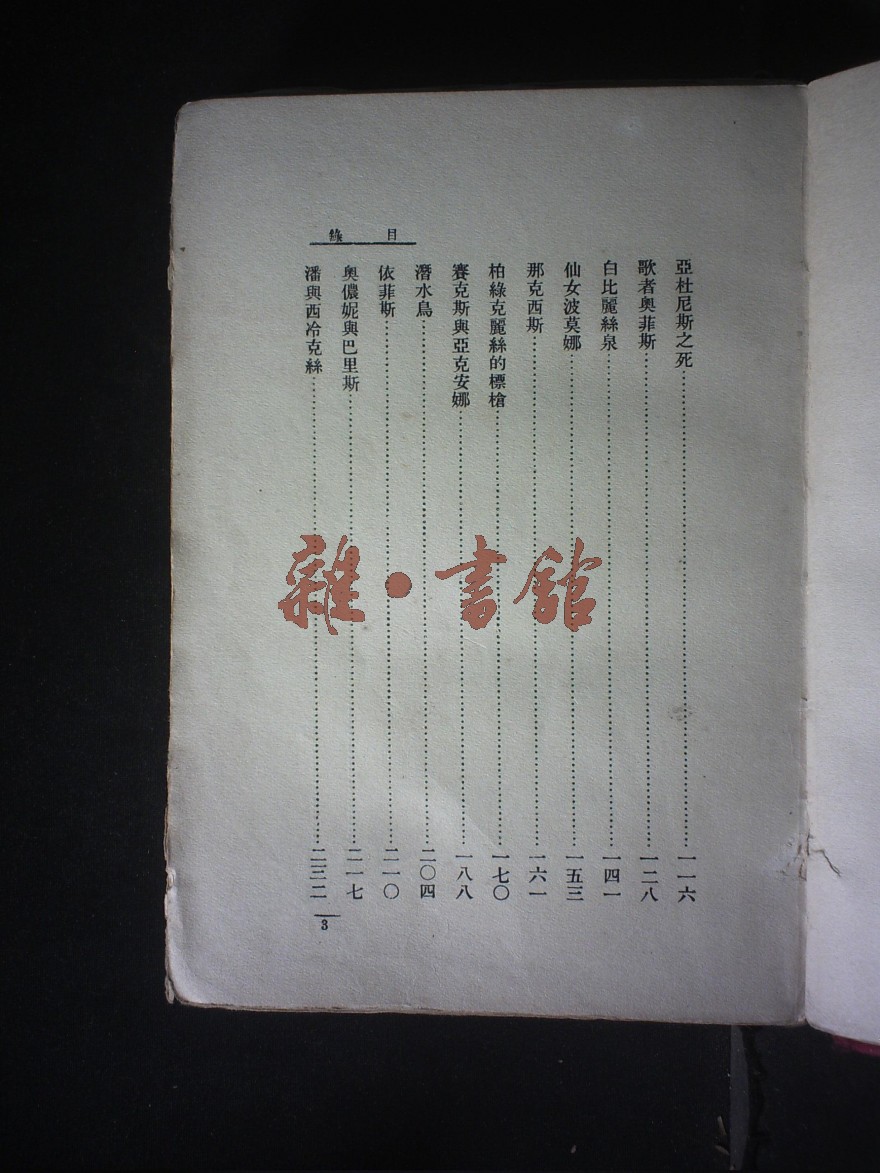 目錄
亞杜尼斯之死……一一六
歌者奧菲斯……一二八
白比麗絲泉……一四一
仙女波莫娜……一五三
那克西斯……一六一
柏綠克麗絲的標槍……一七〇
賽克斯與亞克安娜……一八八
潛水鳥……二〇四
依菲斯……二一〇
奧儂妮與巴里斯……二一七
潘與西冷克絲……二三二
3
雜·書館